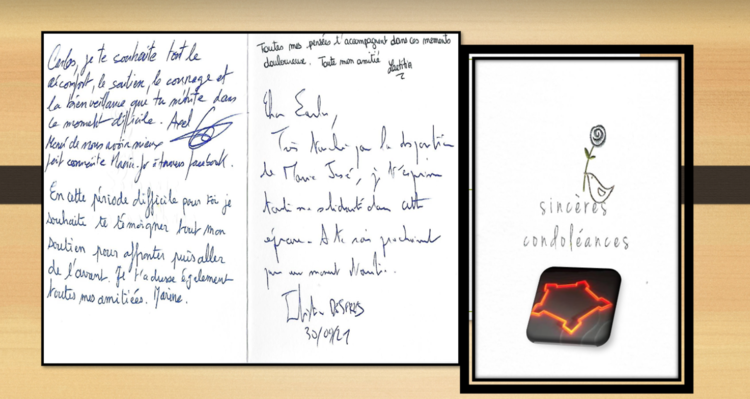 Carlos, je te souhaite tout le
réconfort, le soutien, le courage et
la bienveillance que tu mérite dans
ce moment difficile. Axel
Merci de nous avoir mieux
fait connaître Marie-Jo à travers facebook.
En cette période difficile pour toi je
souhaite te témoigner tout mon
soutien pour affronter puis aller
de l'avant. Je t'adresse également
toutes mes amitiées. Marine.
Toutes mes pensées t'accompagnent dans ces moments
douloureux. Toute mon amitié
Laetitia
Cher
Très touché par la disparition
de Marie José, je t'exprime
toute ma solidarité dans cette
épreuve. A te voir prochainement
pour un moment
DESPRES
30/09/21
sincères
condoléances